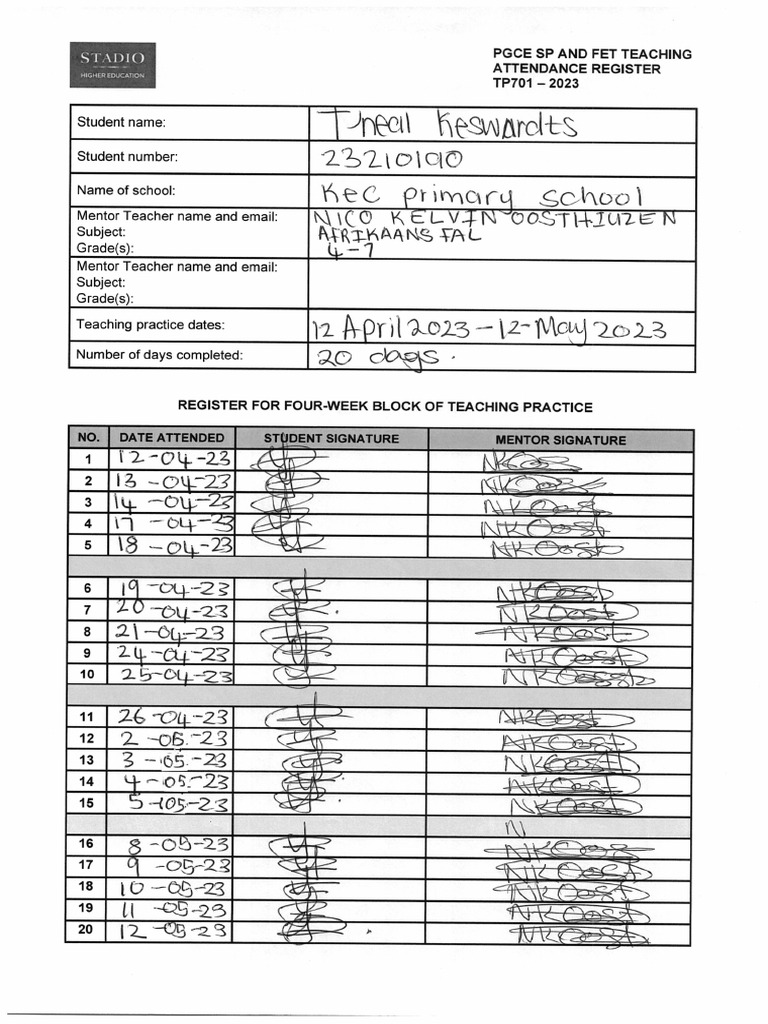 STADIO
HIGHER EDUCATION
PGCE SP AND FET TEACHING
ATTENDANCE REGISTER
TP701 – 2023
Student name: T'neal Keswardts
Student number: 23210190
Name of school: Kec primary school
Mentor Teacher name and email: NICO KELVIN OOSTHIUZEN
Subject: AFRIKAANS FAL
Grade(s): 4-7
Mentor Teacher name and email:
Subject:
Grade(s):
Teaching practice dates: 12 April 2023 - 12-May 2023
Number of days completed: 20 days.
REGISTER FOR FOUR-WEEK BLOCK OF TEACHING PRACTICE
NO. DATE ATTENDED STUDENT SIGNATURE MENTOR SIGNATURE
1 12-04-23 NKOos
2 13-04-23 NKOos
3 14-04-23 NKOost
4 17-04-23 NKOost
5 18-04-23 NKOost
6 19-04-23 NKOost
7 20-04-23 NKOost
8 21-04-23 NKOost
9 24-04-23 NKOost
10 25-04-23 NKOost
11 26-04-23 NKOost
12 2-05-23 NKOost
13 3-05-23 NKOost
14 4-05-23 NKOost
15 5-05-23 NKOost
N
16 8-05-23 NKOos
17 9-05-23 NKOost
18 10-05-23 NKOost
19 11-05-23 NKOost
20 12-05-23 NKOost